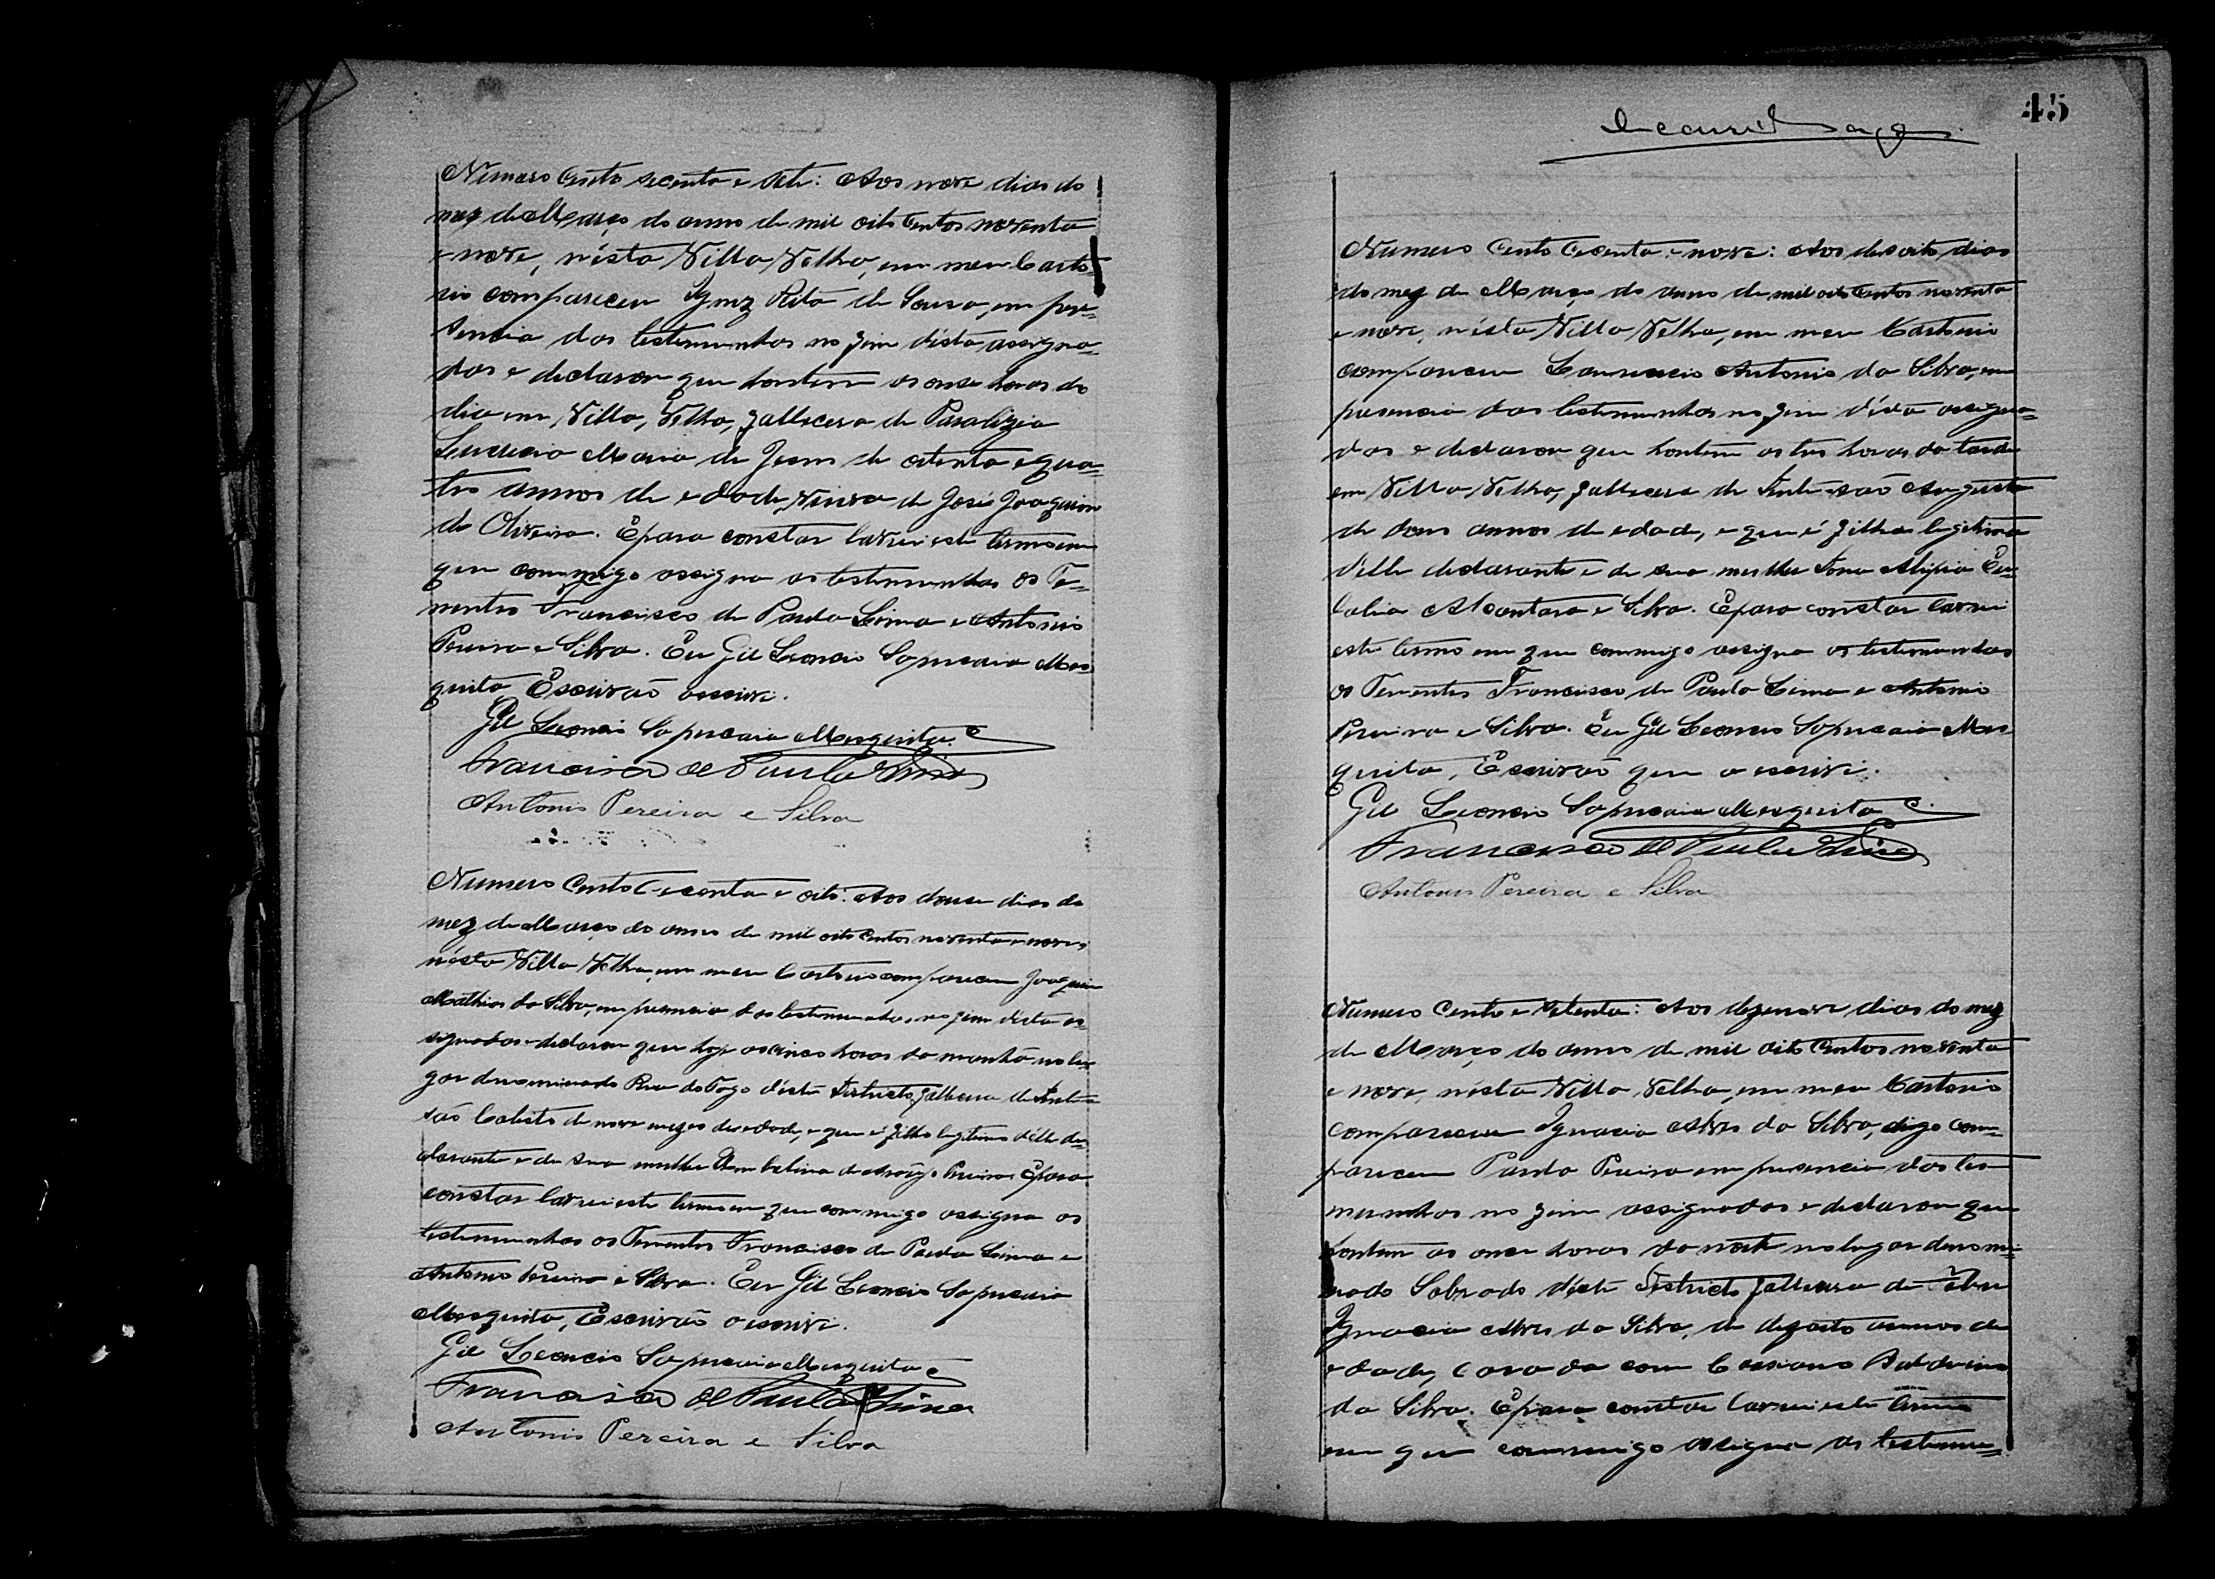 Numero Cento secenta e sete: Aos nove dias do
mez de Março do anno de mil oito centos noventa
e nove, nésta Villa Velha, em meu Carto=
rio compareceu Ignez Rita de Sousa, em pre=
sencia das testemunhas no fim désta assigna=
das e declarou que hontem as onse horas do
dia em Villa Velha, fallecera de Paralizia
Lucrecia Maria de Jesus de oitenta e qua=
tro annos de edade, Viuva de José Joaquim
de Oliveira. E para constar lavrei este termo em
que commigo assigna as testemunhas os Te=
nentes Francisco de Paula Lima e Antonio
Pereira e Silva. Eu Gil Leoncio Sapucaia Mes=
quita Escrivão o escrivi.
Gil Leoncio Sapucaia Mesquita
Francisco de Paula Lima
Antonio Pereira e Silva
Numero Cento Secenta e oito: Aos douse dias do
mez de Março do anno de mil oito centos noventa e nove,
nésta Villa Velha, em meu Cartorio compareceu Joaquim
Mathias da Silva, em presencia das testemunhas, no fim désta as=
signadas e declarou que hoje as cinco horas da manhã no lu=
gar denominado Rua do Fogo déste Districto, fallecera de Denti=
são Calisto de nove mezes de edade, e que é filho legitimo délle de=
clarante e de sua mulher Umbelina de Araújo Pereira. E para
constar lavrei este termo em que commigo assigna as
testemunhas os Tenentes Francisco de Paula Lima e
Antonio Pereira e Silva. Eu Gil Leoncio Sapucaia
Mesquita, Escrivão o escrivi.
Gil Leoncio Sapucaia Mesquita
Francisco de Paula Lima
Antonio Pereira e Silva
45
Numero Cento Secenta e nove: Aos desoito dias
do mez de Março do anno de mil oito centos noventa
e nove, nésta Villa Velha, em meu Cartorio
compareceu Laurencio Antonio da Silva, em
presencia das testemunhas no fim désta assigna=
das e declarou que hontem as tres horas da tarde
em Villa Velha, fallecera de Dentisão Augusta
de dous annos de edade, e que é filha legitima
délle declarante e de sua mulher Dona Alipia Eu=
lalia Alcantara e Silva. E para constar lavrei
este termo em que commigo assigna as testemunhas
os Tenentes Francisco de Paula Lima e Antonio
Pereira e Silva. Eu Gil Leoncio Sapucaia Mes
quita, Escrivão que o escrivi.
Gil Leoncio Sapucaia Mesquita
Francisco de Paula Lima
Antonio Pereira e Silva
Numero Cento e Setenta: Aos dezenove dias do mez
de Março do anno de mil oito Centos noventa
e nove, nésta Villa Velha, em meu Cartorio
compareceu Ignacia Alves da Silva, digo com=
pareceu Paulo Pereira em presencia das tes
munhas no fim assignadas e declarou que
hontem as onse horas da noite no lugar denomi=
nado Sobrado déste Districto fallecera de Febre
Ignacia Alves da Silva, de dezoito annos de
edade, casada com Cassiano Balduino
da Silva. E para constar lavrei este termo
em que commigo assigna as testemu=